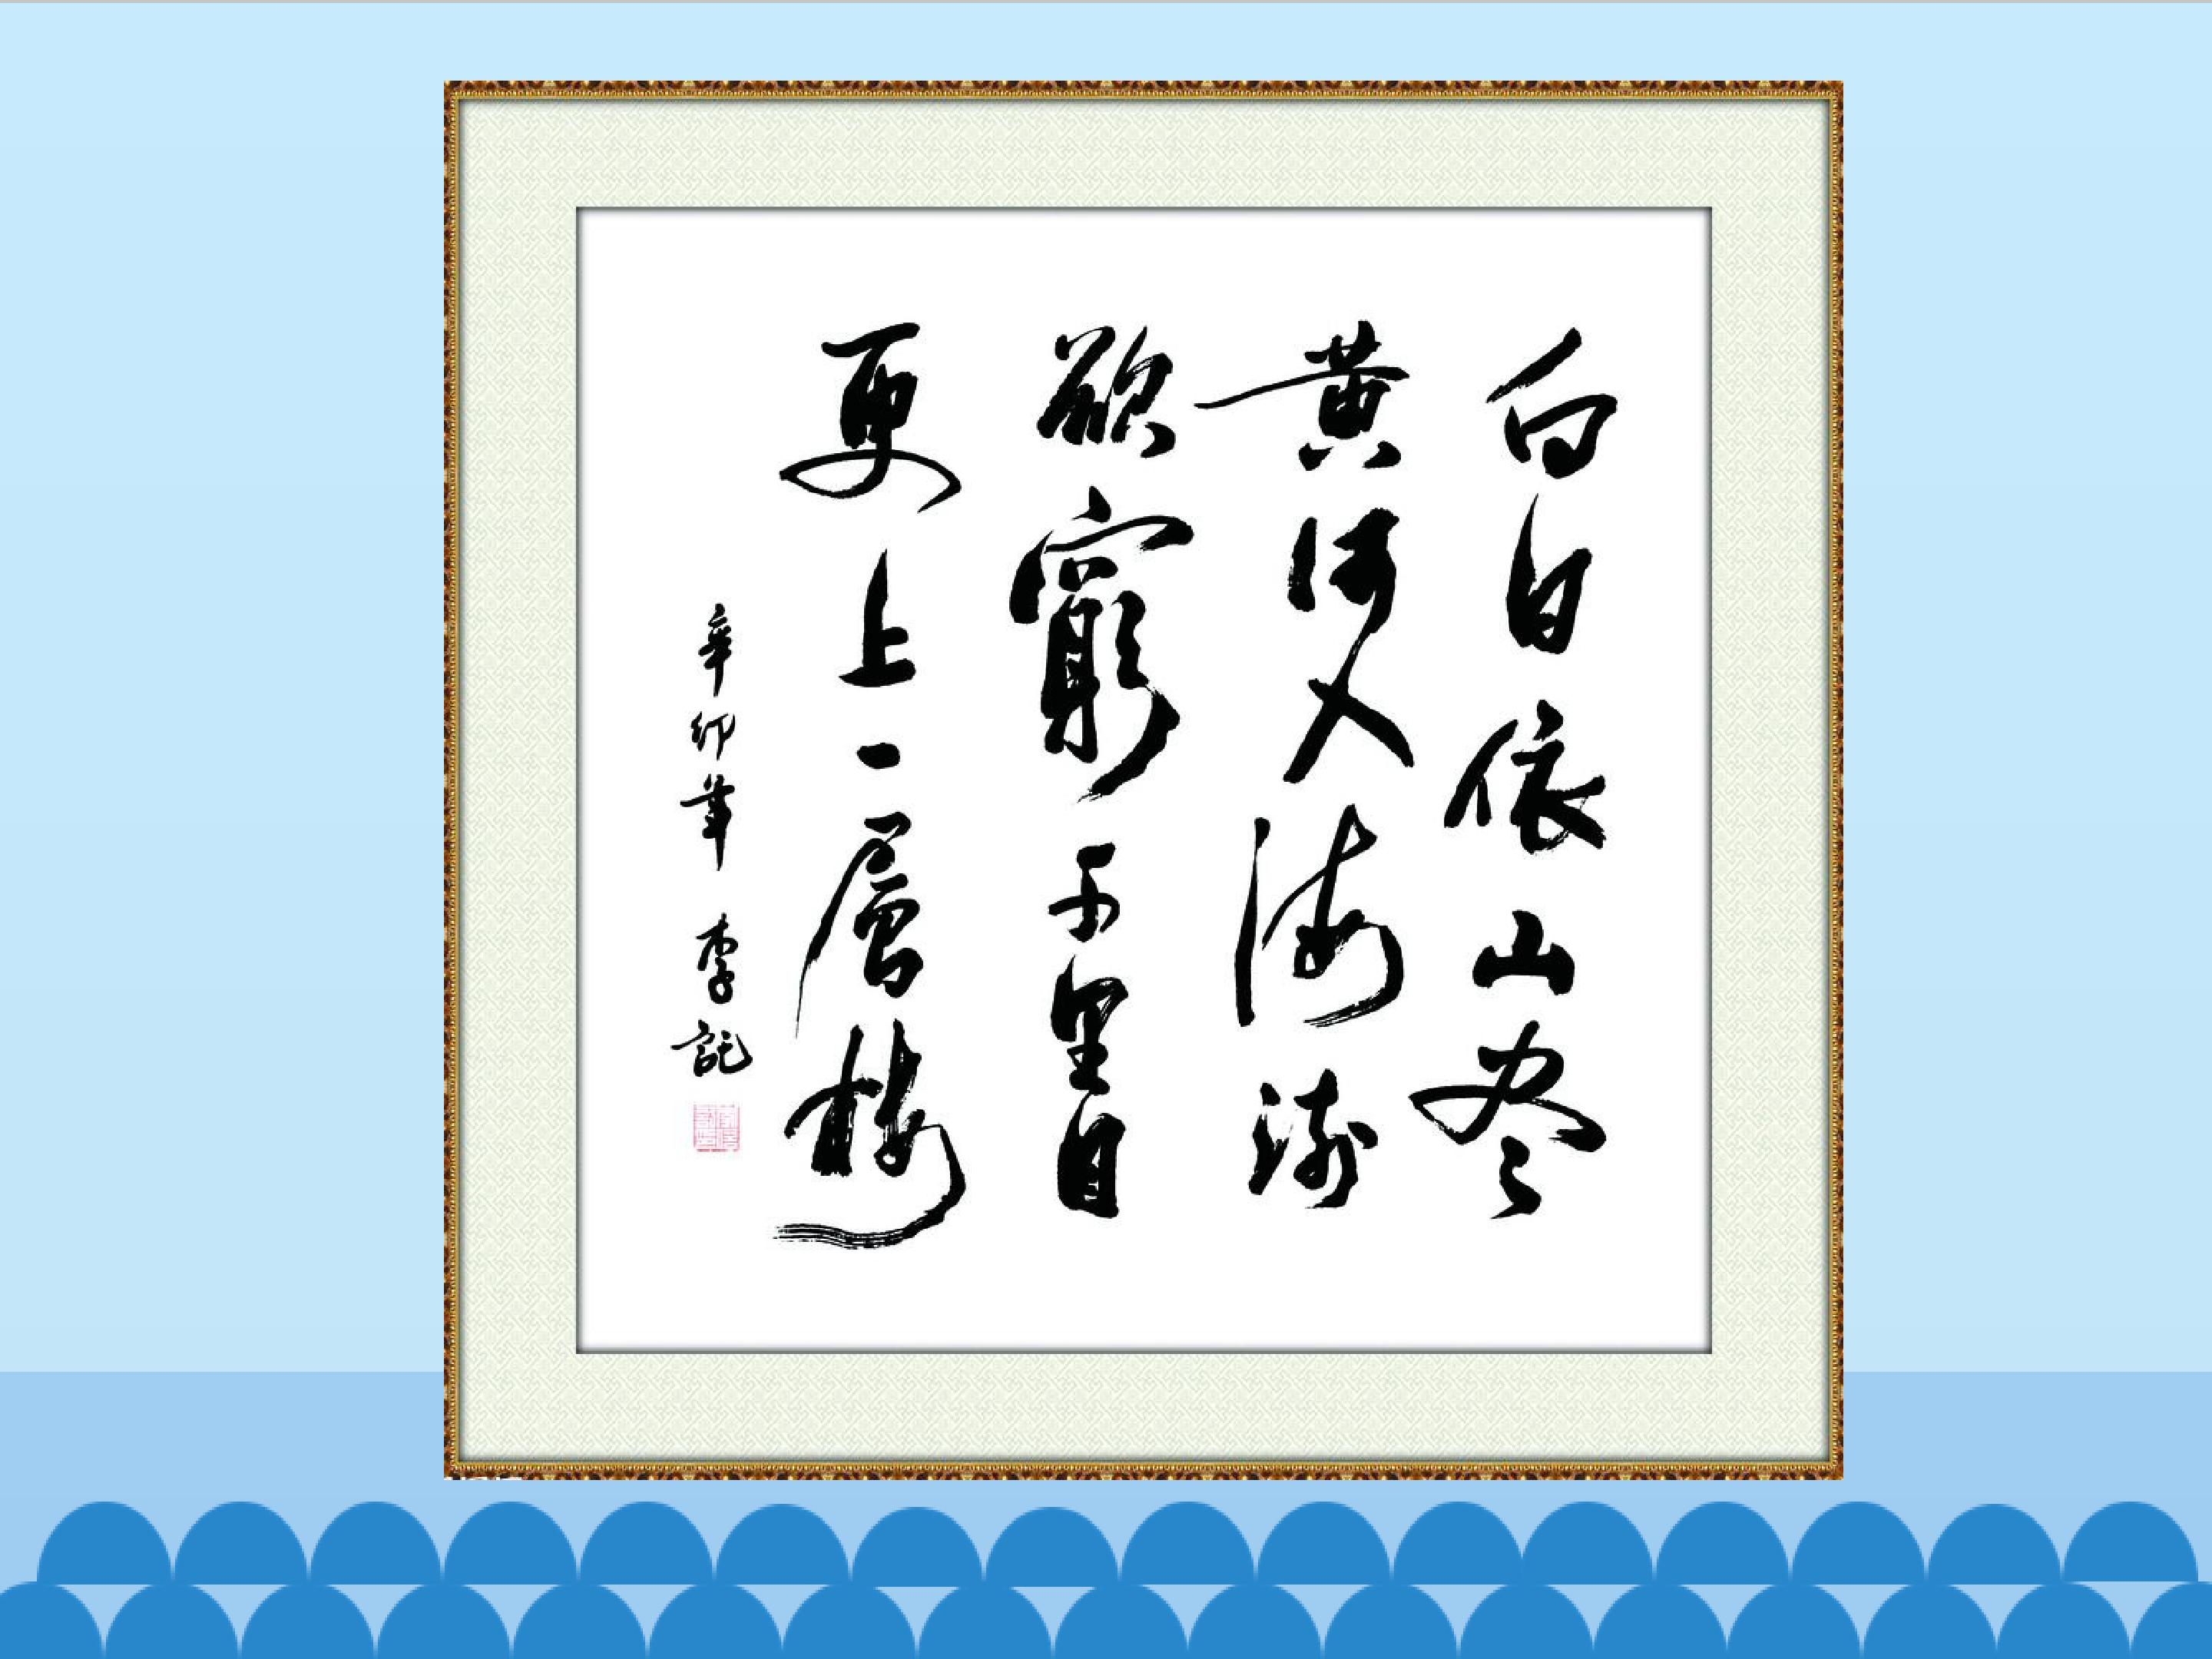 白日依山尽
黄河入海流
欲窮千里目
更上一層楼
辛卯年 李記